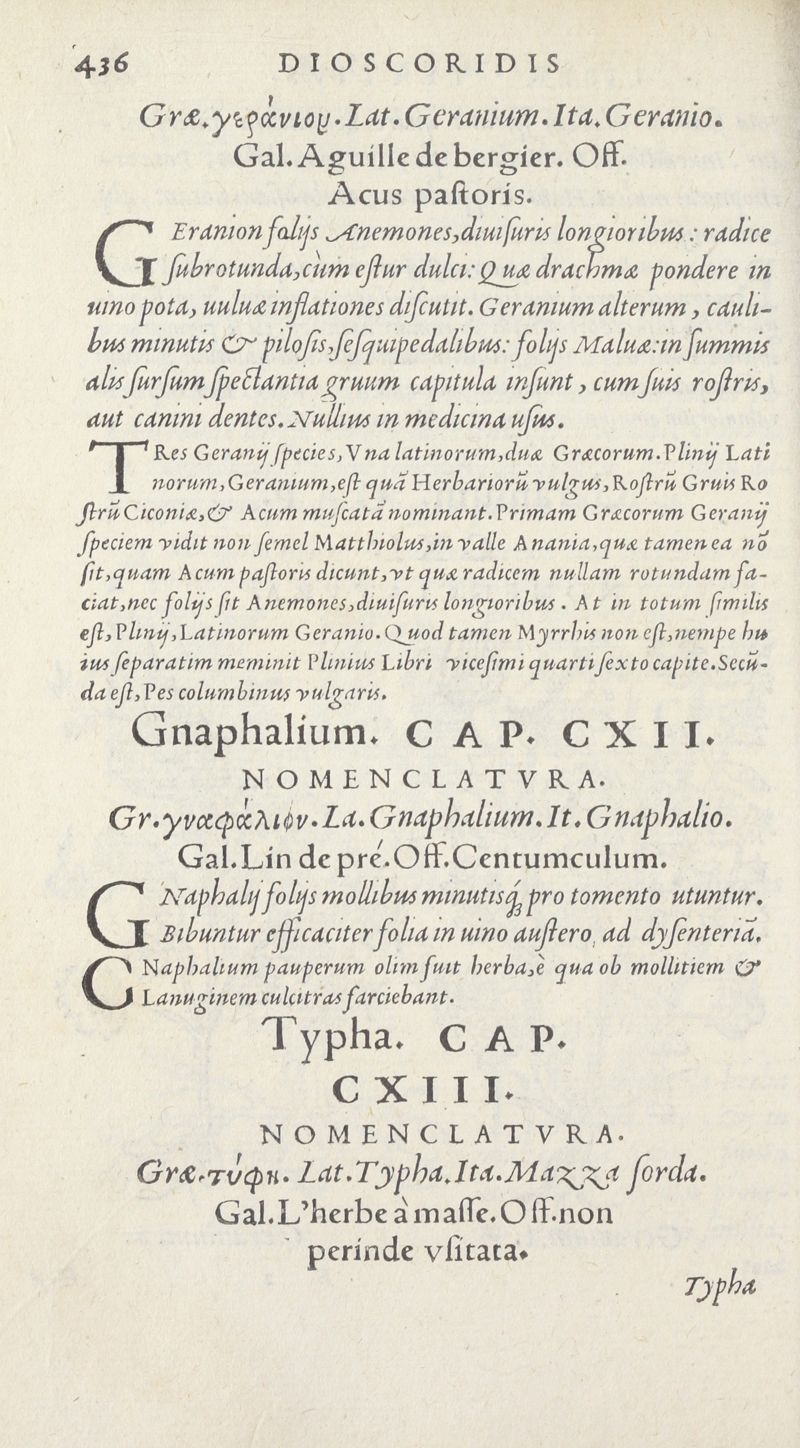 436 DIOSCORIDIS
Græ.γεράνιον.Lat.Geranium.Ita.Geranio.
Gal.Aguille de bergier. Off.
Acus paſtoris.
GEranion folijs Anemones,diuiſuris longioribus : radice
ſubrotunda,cùm eſtur dulci: Quæ drachmæ pondere in
uino pota, uuluæ inflationes diſcutit. Geranium alterum , cauli-
bus minutis & piloſis,ſeſquipedalibus: folijs Maluæ:in ſummis
alis ſurſum ſpectantia gruum capitula inſunt , cum ſuis roſtris,
aut canini dentes. Nullius in medicina uſus.
TRes Geranij ſpecies,Vna latinorum,duæ Græcorum.Plinij Lati
norum,Geranium,eſt quā Herbariorū vulgus,Roſtrū Gruis Ro
ſtrū Ciconiæ,& Acum muſcatā nominant.Primam Græcorum Geranij
ſpeciem vidit non ſemel Matthiolus,in valle Anania,quæ tamen ea nō
ſit,quam Acum paſtoris dicunt,vt quæ radicem nullam rotundam fa-
ciat,nec folijs ſit Anemones,diuiſuris longioribus . At in totum ſimilis
eſt, Plinij,Latinorum Geranio. Quod tamen Myrrhis non eſt,nempe hu
ius ſeparatim meminit Plinius Libri viceſimi quarti ſexto capite.Secū-
da eſt, Pes columbinus vulgaris.
Gnaphalium. CAP. CXII.
NOMENCLATVRA.
Gr.γναφάλιον.La.Gnaphalium.It.Gnaphalio.
Gal.Lin de pré.Off.Centumculum.
GNaphalij folijs mollibus minutisq́ꝫ pro tomento utuntur.
Bibuntur efficaciter folia in uino auſtero, ad dyſenteriā.
GNaphalium pauperum olim fuit herba,è qua ob mollitiem &
Lanuginem culcitras farciebant.
Typha. CAP.
CXIII.
NOMENCLATVRA.
Græ.τύφη. Lat.Typha.Ita.Mazza ſorda.
Gal.L'herbe à maſſe.Off.non
perinde vſitata.
Typha